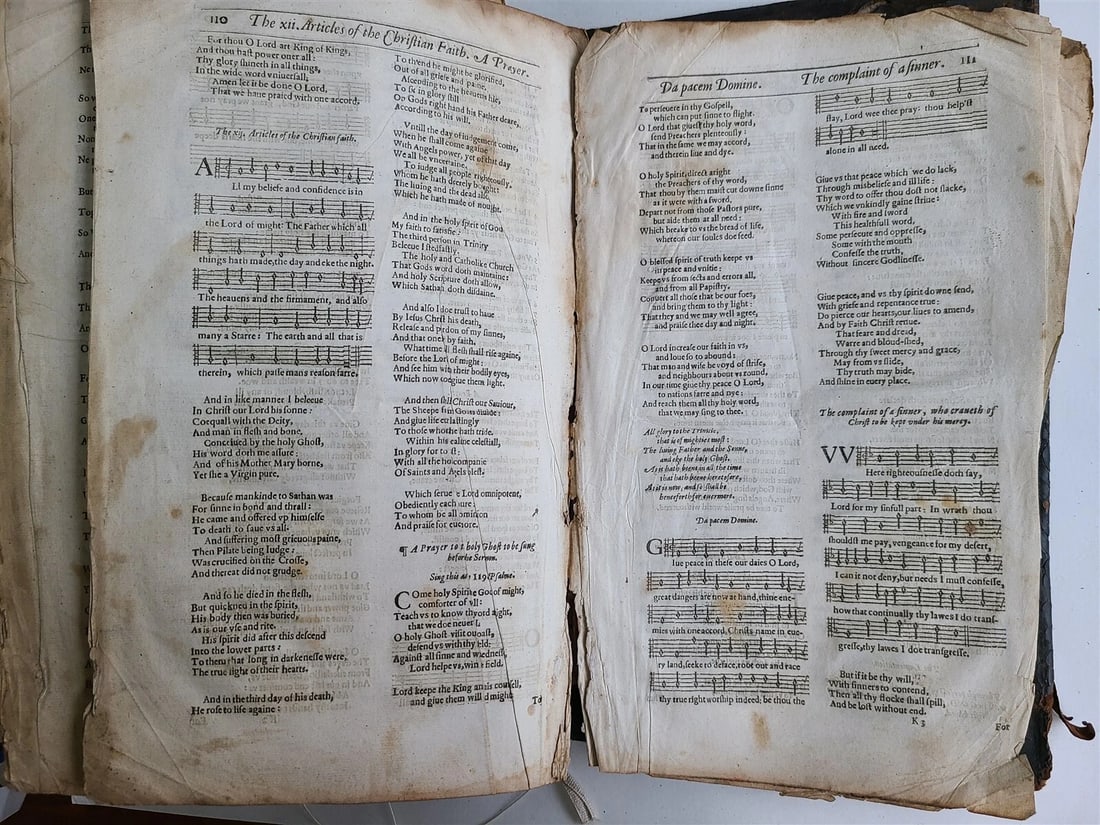 110
The xii. Articles of the Chriſtian Faith. A Prayer.
For thou O Lord art King of Kings,
And thou haſt power ouer all:
Thy glory ſhineth in all things,
In the wide word vniuerſall,
Amen let it be done O Lord,
That we haue praied with one accord,
The xij. Articles of the Chriſtian faith.
ALl my beliefe and confidence is in
the Lord of might: The Father which all
things hath made, the day and eke the night.
The heauens and the firmament, and alſo
many a Starre: The earth and all that is
therein, which paſſe mans reaſon farre.
And in like manner I beleeue
In Chriſt our Lord his ſonne:
Coequall with the Deity,
And man in fleſh and bone.
Conceiued by the holy Ghoſt,
His word doth me aſſure:
And of his Mother Mary borne,
Yet ſhe a Virgin pure.
Becauſe mankinde to Sathan was
For ſinne in bond and thrall:
He came and offered vp himſelfe
To death, to ſaue vs all.
And ſuffering moſt grieuous paine,
Then Pilate being Iudge:
Was crucified on the Croſſe,
And thereat did not grudge.
And ſo he died in the fleſh,
But quickned in the ſpirit,
His body then was buried,
As is our vſe and rite.
His ſpirit did after this deſcend
Into the lower parts:
To them that long in darkeneſſe were,
The true light of their hearts.
And in the third day of his death,
He roſe to life againe:
To th'end he might be glorified,
Out of all griefe and paine,
Aſcending to the heauens hie,
To ſit in glory ſtill
On Gods right hand his Father deare,
According to his will,
Vntill the day of iudgement come,
When he ſhall come againe
With Angels power, yet of that day
We all be vncertaine,
To iudge all people righteouſly,
Whom he hath deerely bought
The liuing and the dead alſo,
Which he hath made of nought.
And in the holy ſpirit of God
My faith to ſatisfie:
The third perſon in Trinity
Beleeue I ſtedfaſtly,
The holy and Catholike Church
That Gods word doth maintaine:
And holy Scripture doth allow,
Which Sathan doth diſdaine.
And alſo I doe truſt to haue
By Ieſus Chriſt his death,
Releaſe and pardon of my ſinnes,
And that onely by faith.
What time all fleſh ſhall riſe againe,
Before the Lord of might
And ſee him with their bodily eyes,
Which now doe giue them light.
And then ſhall Chriſt our Sauiour,
The Sheepe from Goats diuide:
And giue life euerlaſtingly
To thoſe whom he hath tride.
Within his realme celeſtiall,
In glory for to reſt:
With all the holy companie
Of Saints and Angels bleſt.
Which ſerue the Lord omnipotent,
Obediently each hour:
To whom be all dominion
And praiſe for euermore.
¶ A Prayer to the holy Ghoſt to be ſung
before the Sermon.
Sing this as: 119 Pſalme.
COme holy Spirit the God of might,
comforter of vs all:
Teach vs to know thy word aright,
that we doe neuer fall.
O holy Ghoſt viſit our coaſt,
defend vs with thy ſhield:
Againſt all ſinne and wickedneſſe,
Lord helpe vs, win the field.
Lord keepe the King and his counſell,
and giue them will and might
To
Da pacem Domine.
The complaint of a ſinner.
111
To perſeuere in thy Goſpell,
which can put ſinne to flight.
O Lord that giueſt thy holy word,
ſend Preachers plenteouſly:
That in the ſame we may accord,
and therein liue and dye.
O holy Spirit, direct aright
the Preachers of thy word,
That thou by them maiſt cut downe ſinne
as it were with a ſword,
Depart not from thoſe Paſtors pure,
but aide them at all need:
Which breake to vs the bread of life,
whereon our ſoules doe feed.
O bleſſed ſpirit of truth keepe vs
in peace and vnitie:
Keepe vs from ſects and errors all,
and from all Papiſtry.
Conuert all thoſe that be our foes,
and bring them to thy light:
That they and we may well agree,
and praiſe thee day and night.
O Lord increaſe our faith in vs,
and loue ſo to abound:
That man and wife be voyd of ſtrife,
and neighbours about vs round,
In our time giue thy peace O Lord,
to nations farre and nye:
And teach them all thy holy word,
that we may ſing to thee.
All glory to the Trinitie,
that is of mightieſt moſt:
The liuing Father and the Sonne,
and eke the holy Ghoſt.
As it hath beene in all the time
that hath beene heretofore,
As it is now, and ſo ſhall be
henceforth for euermore.
Da pacem Domine.
GIue peace in theſe our daies O Lord,
great dangers are now at hand, thine ene-
mies with one accord, Chriſts name in eue-
ry land, ſeeke to deface, root out and race
thy true right worſhip indeed: be thou the
ſtay, Lord wee thee pray: thou help'ſt
alone in all need.
Giue vs that peace which we do lack,
Through misbeliefe and ill life:
Thy word to offer thou doſt not ſlacke,
Which we vnkindly gaine ſtriue:
With fire and ſword
This healthfull word,
Some perſecute and oppreſſe,
Some with the mouth
Confeſſe the truth,
Without ſincere Godlineſſe.
Giue peace, and vs thy ſpirit downe ſend,
With griefe and repentance true:
Do pierce our hearts, our liues to amend,
And by Faith Chriſt renue.
That feare and dread,
Warre and bloud-ſhed,
Through thy ſweet mercy and grace,
May from vs ſlide,
Thy truth may bide,
And ſhine in euery place.
The complaint of a ſinner, who craueth of
Chriſt to be kept vnder his mercy.
VVHere righteouſneſſe doth ſay,
Lord for my ſinfull part: In wrath thou
ſhouldſt me pay, vengeance for my deſert,
I can it not deny, but needs I muſt confeſſe,
how that continually thy lawes I do tranſ-
greſſe, thy lawes I doe tranſgreſſe.
But if it be thy will,
With ſinners to contend,
Then all thy flocke ſhall ſpill,
And be loſt without end.
K 3
For